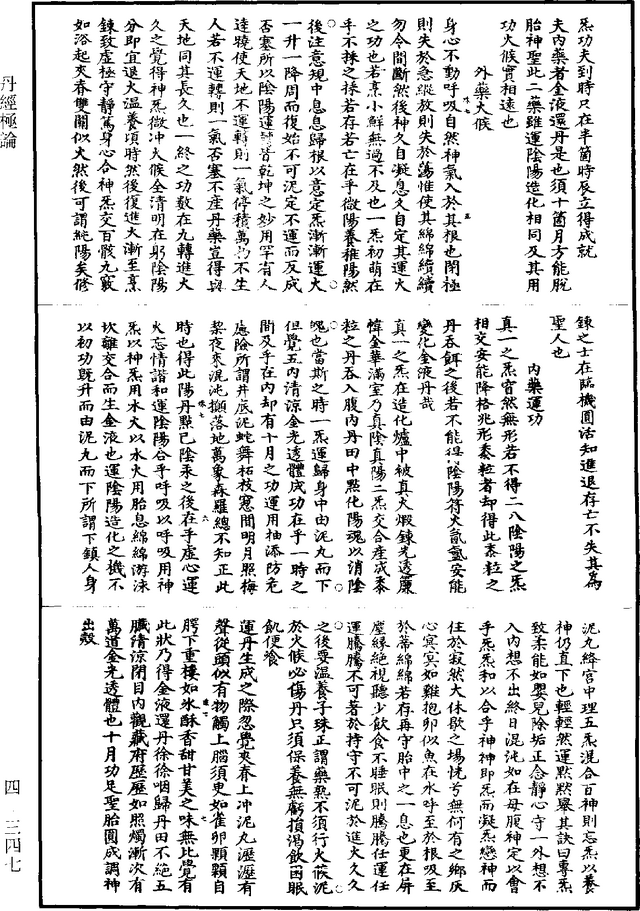 炁功夫到時只在半箇時辰立得成就
夫內藥者金液還丹是也須十箇月方能脫
胎神聖此二藥雖運陰陽造化相同及其用
功火候實相遠也
外藥火候
身心不動呼吸自然神氣入於其根也閉極
則失於急縱放則失於蕩惟使其綿綿續續
勿令間斷然後神久自凝息久自定其運火
之功也若烹小鮮無過不及也一炁初萌在
乎不採之採若存若亡在乎微陽養稚陽然
後注意規中息息歸根以意定炁漸漸運火
一升一降周而復始不可泥定不運而反成
否塞所以陰陽運轉者乾坤之妙用罕有人
達曉使天地不運轉則一氣停積萬物不生
人若不運轉則一氣否塞不産丹藥豈得與
天地同其長久也一終之功數在九轉進火
久之覺得神炁微冲火候全清明在躬陰陽
分即宜退火溫養頃時然後復進火漸至烹
鍊致虛極守靜篤身心合神炁交百骸九竅
如浴起夾脊雙關似火然後可謂純陽矣修
鍊之士在臨機圓活知進退存亡不失其爲
聖人也
內藥運功
真一之炁窅然無形若不得二八陰陽之炁
相交安能降格兆形黍粒者却得此黍粒之
丹吞餌之後若不能得陰陽符火氤氳安能
變化金液丹哉
真一之炁在造化爐中被真火煅鍊光透簾
幃金華滿室乃真陰真陽二炁交合産成黍
粒之丹吞入腹內丹田中點化陽魂以消陰
魄也當斯之時一炁運歸身中由泥丸而下
但覺五內清涼金光透體成功在乎一時之
間及乎在內却有十月之功運用抽添防危
慮險所謂井底泥蛇舞柘枝窓間明月照梅
梨夜來混沌攧落地萬象森羅總不知正此
時也得此陽丹點己陰汞之後在乎虛心運
火忘情諧和運陰陽合乎呼吸以呼吸用神
炁以神炁用水火以水火用胎息綿綿游泳
坎離交合而生金液也運陰陽造化之機不
以初功既升而由泥丸而下所謂下鎖人身
泥丸絳宮中理五炁混合百神則忘炁以養
神仍直下也輕輕然運默默舉其訣曰專炁
致柔能如嬰兒除垢正念靜心守一外想不
入內想不出終日混沌如在母腹神定以會
乎炁炁和以合乎神神即炁而凝炁戀神而
住於寂然大休歇之場恍兮無何有之鄉灰
心冥冥如雞抱卵似魚在水呼至於根吸至
於蒂綿綿若存再守胎中之一息也更在屏
塵緣絕視聽少飲食不睡眠則騰騰任運任
運騰騰不可著於持守不可泥於進火久久
之後要溫養子珠正謂藥熟不須行火候泥
於火候必傷丹只須保養無虧損渴飲困眠
飢便飡
運丹生成之際忽覺夾脊上冲泥丸瀝瀝有
聲從頭似有物觸上腦須臾如雀卵顆顆自
腭下重樓如氷酥香甜甘美之味無比覺有
此狀乃得金液還丹徐徐咽歸丹田不絕五
臟清涼閉目內觀臟府歷歷如照燭漸次有
萬道金光透體也十月功足聖胎圓成調神
出殼
丹經極論
四－三四七